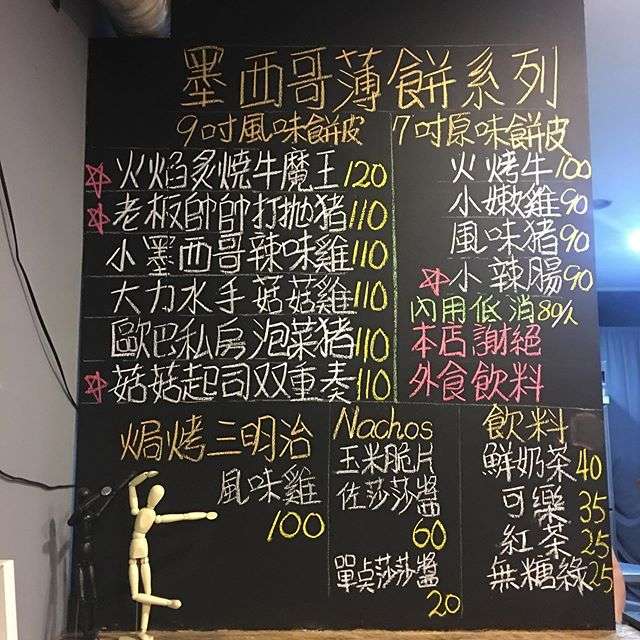 墨西哥薄餅系列
9吋風味餅皮
火焰炙燒牛魔王120
老板帥帥打拋豬110
小墨西哥辣味雞110
大力水手菇菇雞110
歐巴私房泡菜豬110
菇菇起司双重奏110
7吋原味餅皮
火烤牛100
小嫩雞90
風味豬90
小辣腸90
內用低消80/人
本店謝絕
外食飲料
焗烤三明治
風味雞
100
Nachos
玉米脆片
佐莎莎醬
60
單点莎莎醬
20
飲料
鮮奶茶40
可樂35
紅茶25
無糖綠25